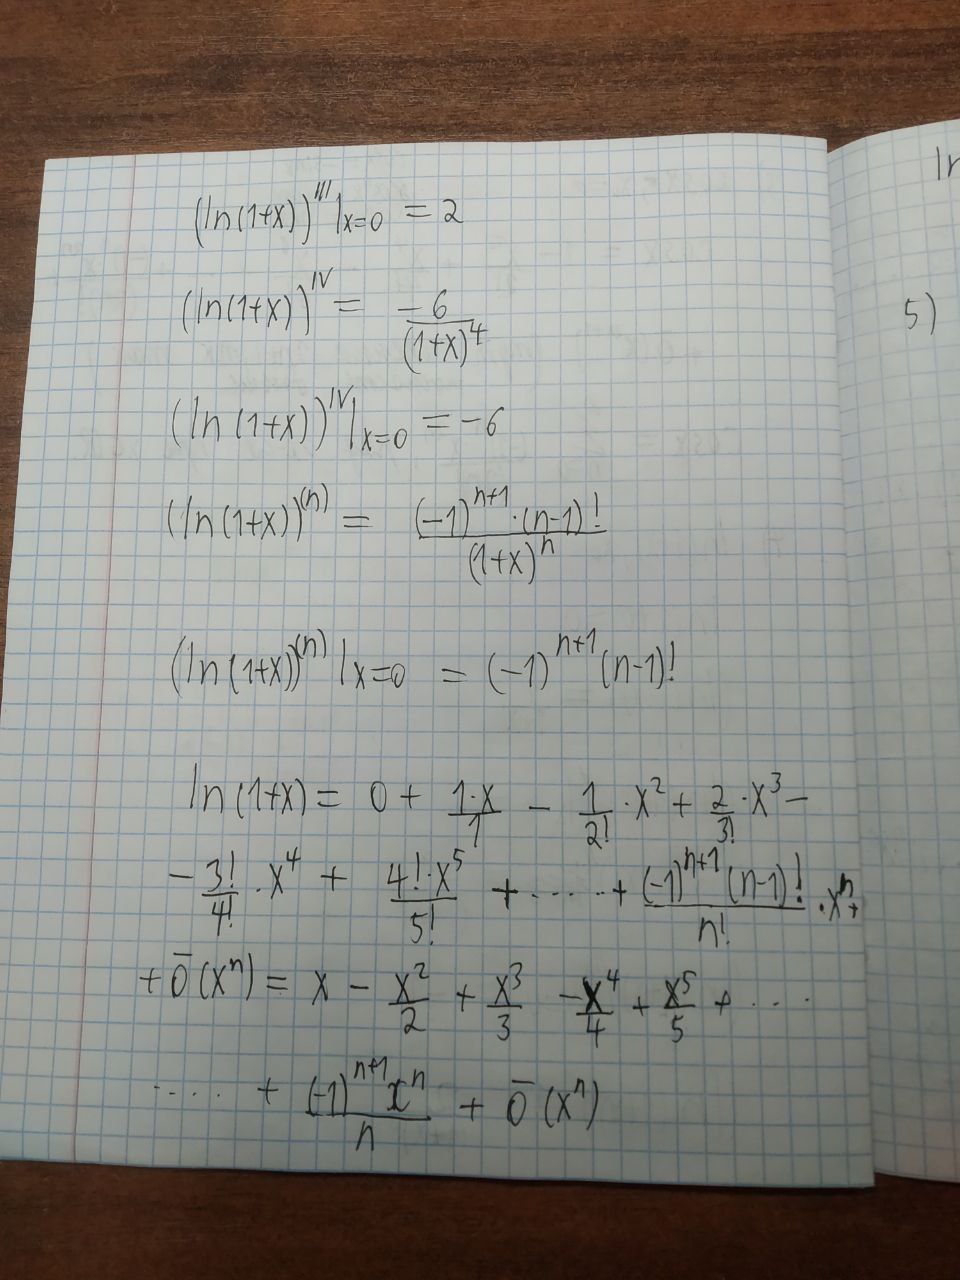 (ln(1+x))'''|x=0 = 2
(ln(1+x))^IV = -6/(1+x)^4
(ln(1+x))^IV|x=0 = -6
(ln(1+x))^(n) = (-1)^(n+1)·(n-1)!/(1+x)^n
(ln(1+x))^(n)|x=0 = (-1)^(n+1)(n-1)!
ln(1+x) = 0 + 1·x/1 - 1/2!·x^2 + 2/3!·x^3 -
- 3!/4!·x^4 + 4!·x^5/5! + ..... + (-1)^(n+1)(n-1)!/n!·x^n +
+ ō(x^n) = x - x^2/2 + x^3/3 - x^4/4 + x^5/5 + ....
.... + (-1)^(n+1)x^n/n + ō(x^n)
ln
5)